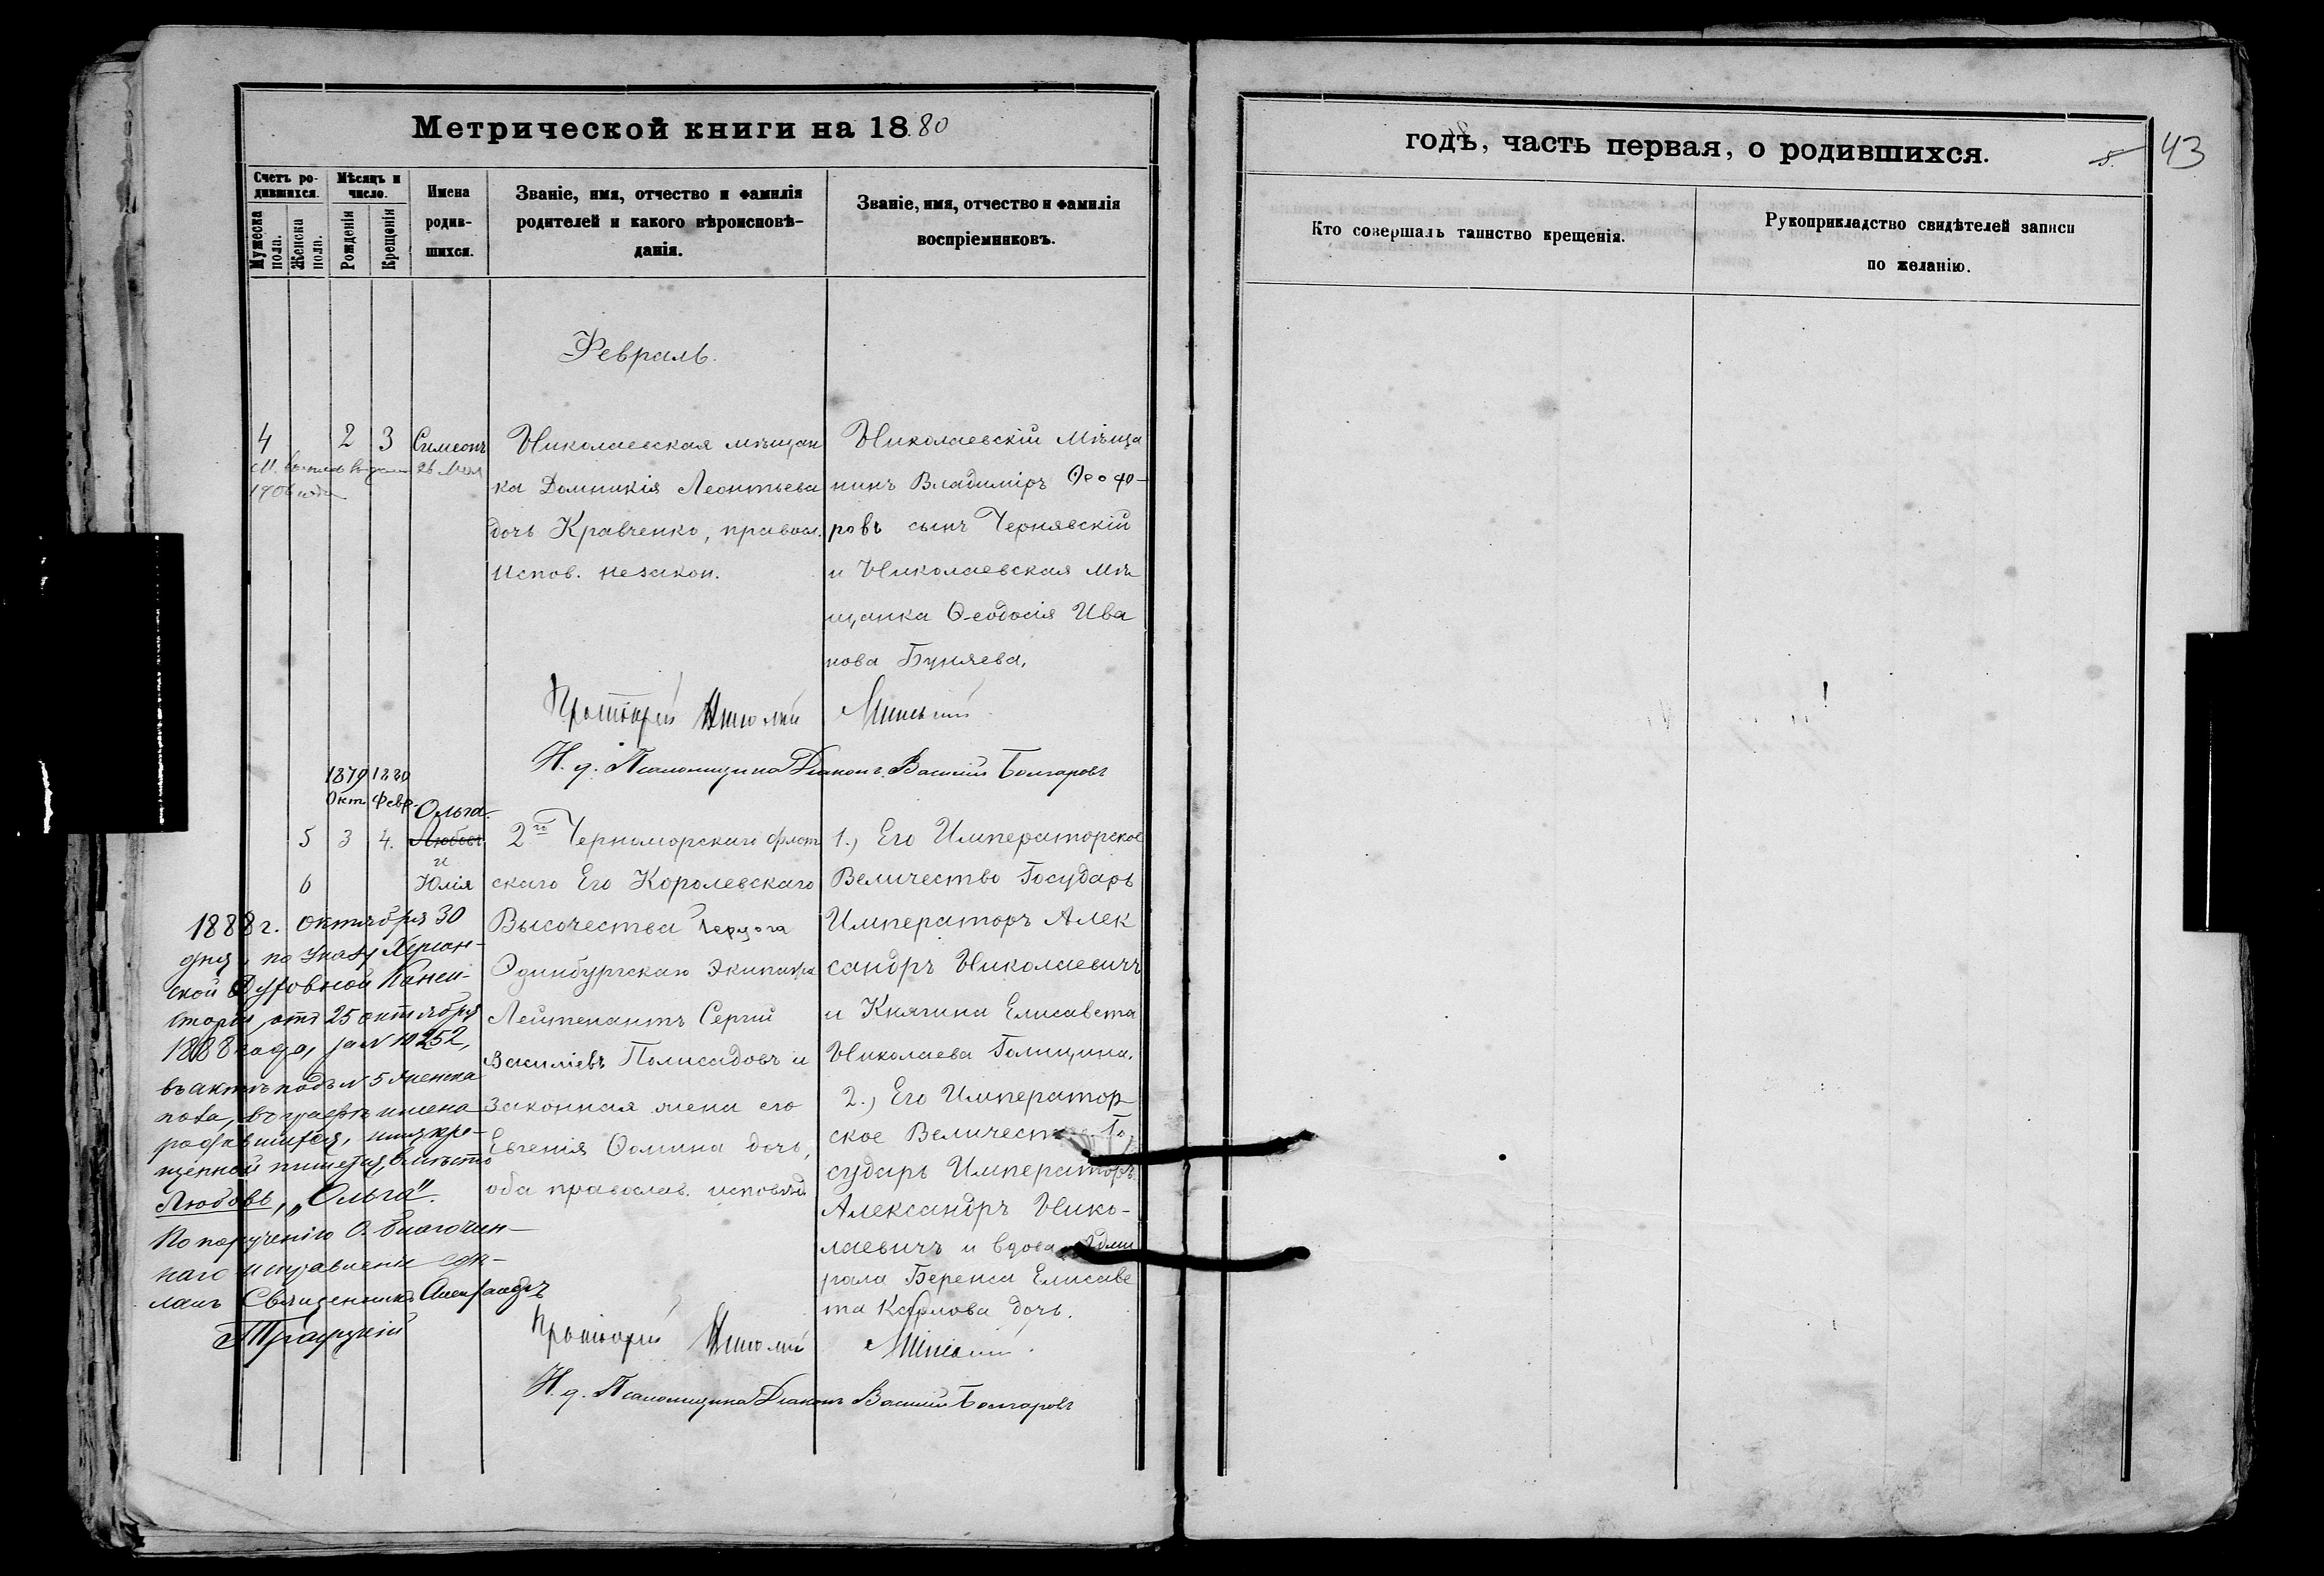 Метрической книги на 1880
годѣ, часть первая, о родившихся.
5.
43
Счетъ ро-
дившихся.
Мужеска
пола.
Женска
пола.
Мѣсяцъ и
число.
Рожденія
Крещенія
Имена
родив-
шихся.
Званіе, имя, отчество и фамилія
родителей и какого вѣроисповѣ-
данія.
Званіе, имя, отчество и фамилія
воспріемниковъ.
Кто совершалъ таинство крещенія.
Рукоприкладство свидѣтелей записи
по желанію.
Февраль.
4 2 3 Симеонъ
М. 26 Мая
1906 года
Николаевская мѣщан
ка Домникія Леонтьева
дочь Кравченко, правосл.
испов. незакон.
Николаевскій Мѣща
нинъ Владиміръ Ѳеофо-
ровъ сынъ Чернявскій
и Николаевская мѣ
щанка Ѳеодосія Ива
нова Буняева.
Протоіерей
И. д. Псаломщика Діаконъ Василій Болгаровъ
1879 1880
Окт. Февр.
Ольга
5 3 4. Любовь
и
6 Юлія
2го Черноморскаго флот
скаго Его Королевскаго
Высочества Герцога
Эдинбургскаго экипажа
Лейтенантъ Сергій
Василіевъ Полисадовъ и
законная жена его
Евгенія Ѳомина дочь,
оба православ. исповѣд.
1., Его Императорское
Величество Государь
Императоръ Алек
сандръ Николаевичъ
и Княгиня Елисавета
Николаева Голицина.
2., Его Император
ское Величество Го
сударь Императоръ
Александръ Нико-
лаевичъ и вдова Адми
рала Беренса Елисаве
та Карлова дочь.
Протоіерей
И. д. Псаломщика Діаконъ Василій Болгаровъ
1888 г. Октября 30
дня, по указу Херсон-
ской Духовной Консис-
торіи, отъ 25 октября
1888 года, за № 10252,
въ актѣ подъ № 5 женска
пола, въ графѣ имена
родившихся, имя кре-
щенной пишется, вмѣсто
Любовь, „Ольга".
По порученію О. Благочин-
наго исправленіе сдѣ-
лалъ Священникъ Александръ
Троицкій